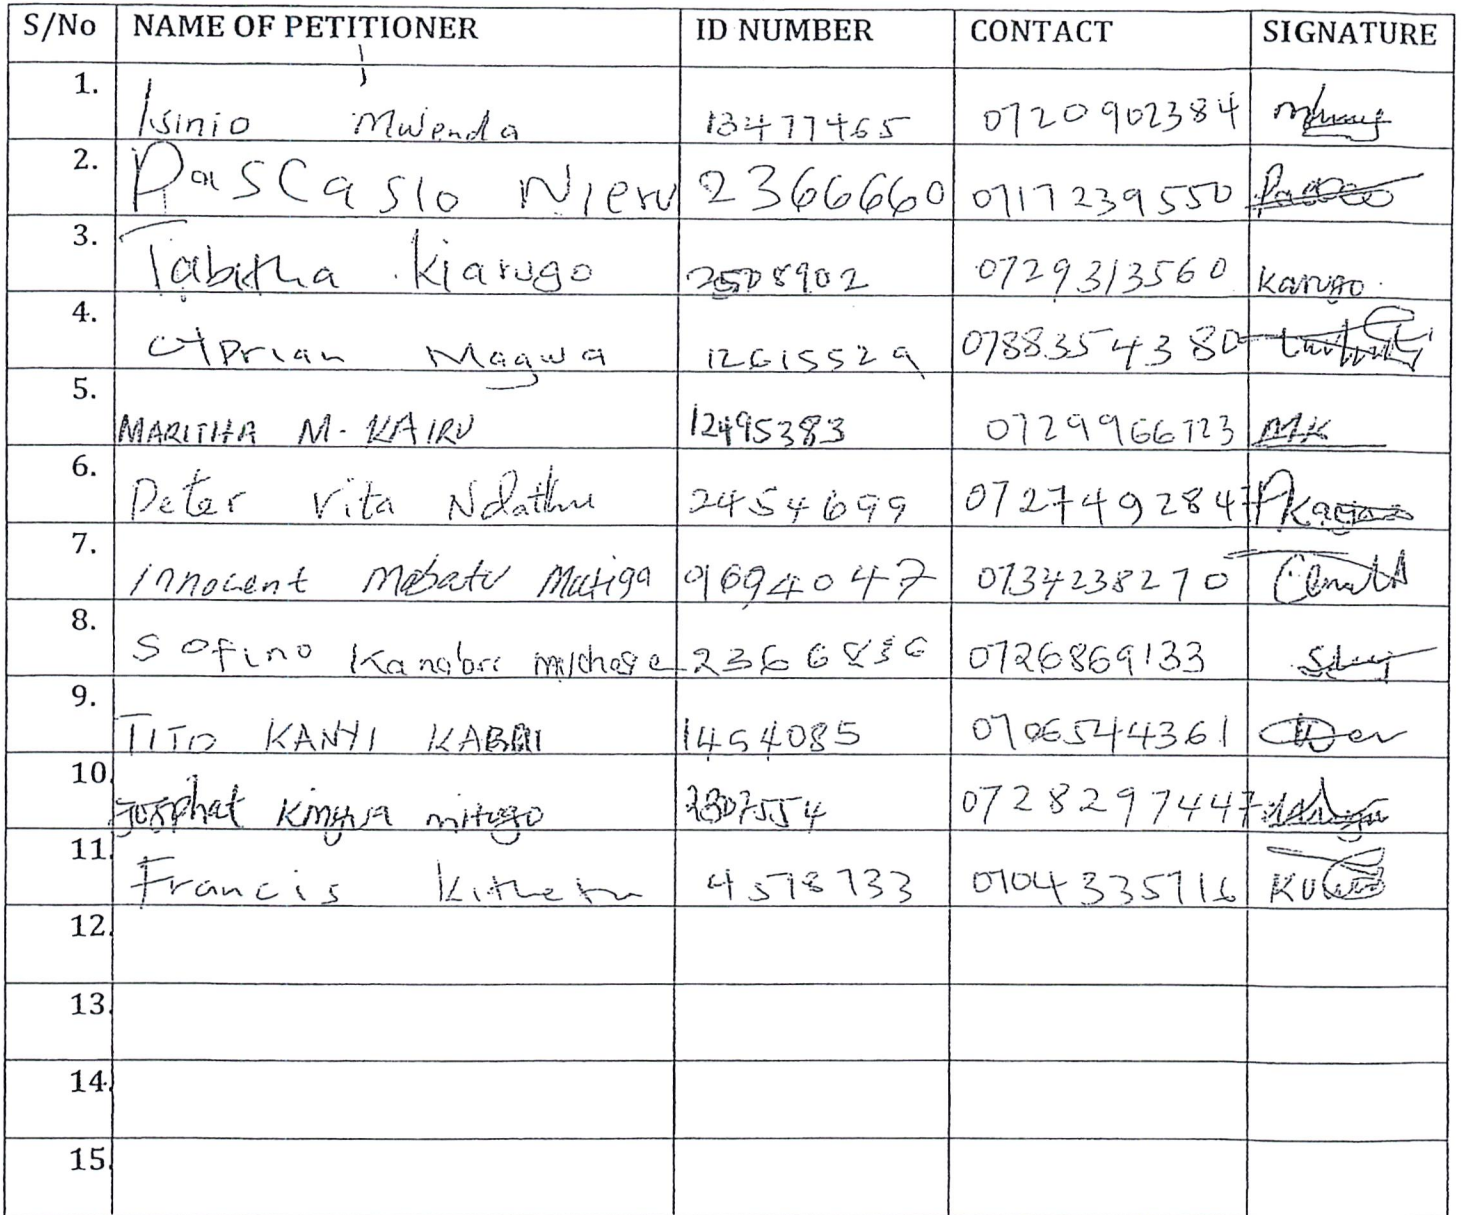 S/No NAME OF PETITIONER ID NUMBER CONTACT SIGNATURE
1. Isinio Mwenda 13477465 0720902384
2. Pascasio Njeru 2366660 0717239550
3. Tabitha Kiarugo 2508902 0729313560 Karugo
4. Cyprian Magwa 12615529 0788354380
5. MARITHA M. KAIRU 12495383 0729966723 MK
6. Peter Vita Ndathu 2454699 0727492847
7. Innocent Mebatu Mutiga 9694047 0734238270
8. Sofino Kanabori 0726869133
9. TITO KANYI 1454085 0706544361
10. Josphat mitugo 0728297447
11. Francis 4578733 0704335716
12.
13.
14.
15.